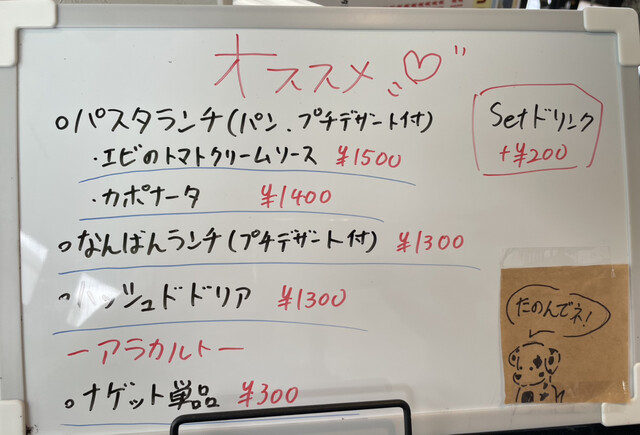 オススメ♡
○パスタランチ(パン、プチデザート付)
・エビのトマトクリームソース ¥1500
・カポナータ ¥1400
○なんばんランチ(プチデザート付) ¥1300
ッシュドドリア ¥1300
ーアラカルトー
○ナゲット単品 ¥300
Setドリンク
+¥200
たのんでネ!